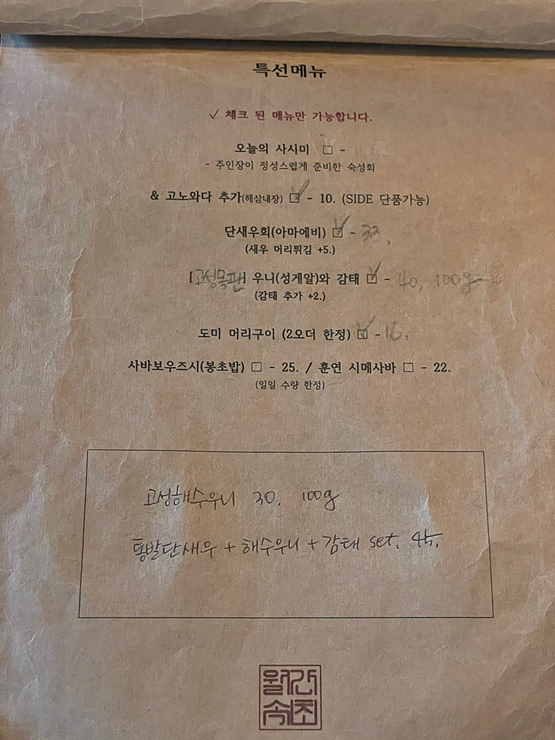 특선메뉴
✓ 체크 된 메뉴만 가능합니다.
오늘의 사시미 □ -
- 주인장이 정성스럽게 준비한 숙성회
& 고노와다 추가(해삼내장) ☑ - 10. (SIDE 단품가능)
단새우회(아마에비) ☑ - 33.
(새우 머리튀김 +5.)
[고성목판] 우니(성게알)와 감태 ☑ - 40. 100g
(감태 추가 +2.)
도미 머리구이 (2오더 한정) ☑ - 16.
사바보우즈시(봉초밥) □ - 25. / 훈연 시메사바 □ - 22.
(일일 수량 한정)
고성해수우니 30. 100g
통발단새우 + 해수우니 + 감태 set. 45.
월간
속초